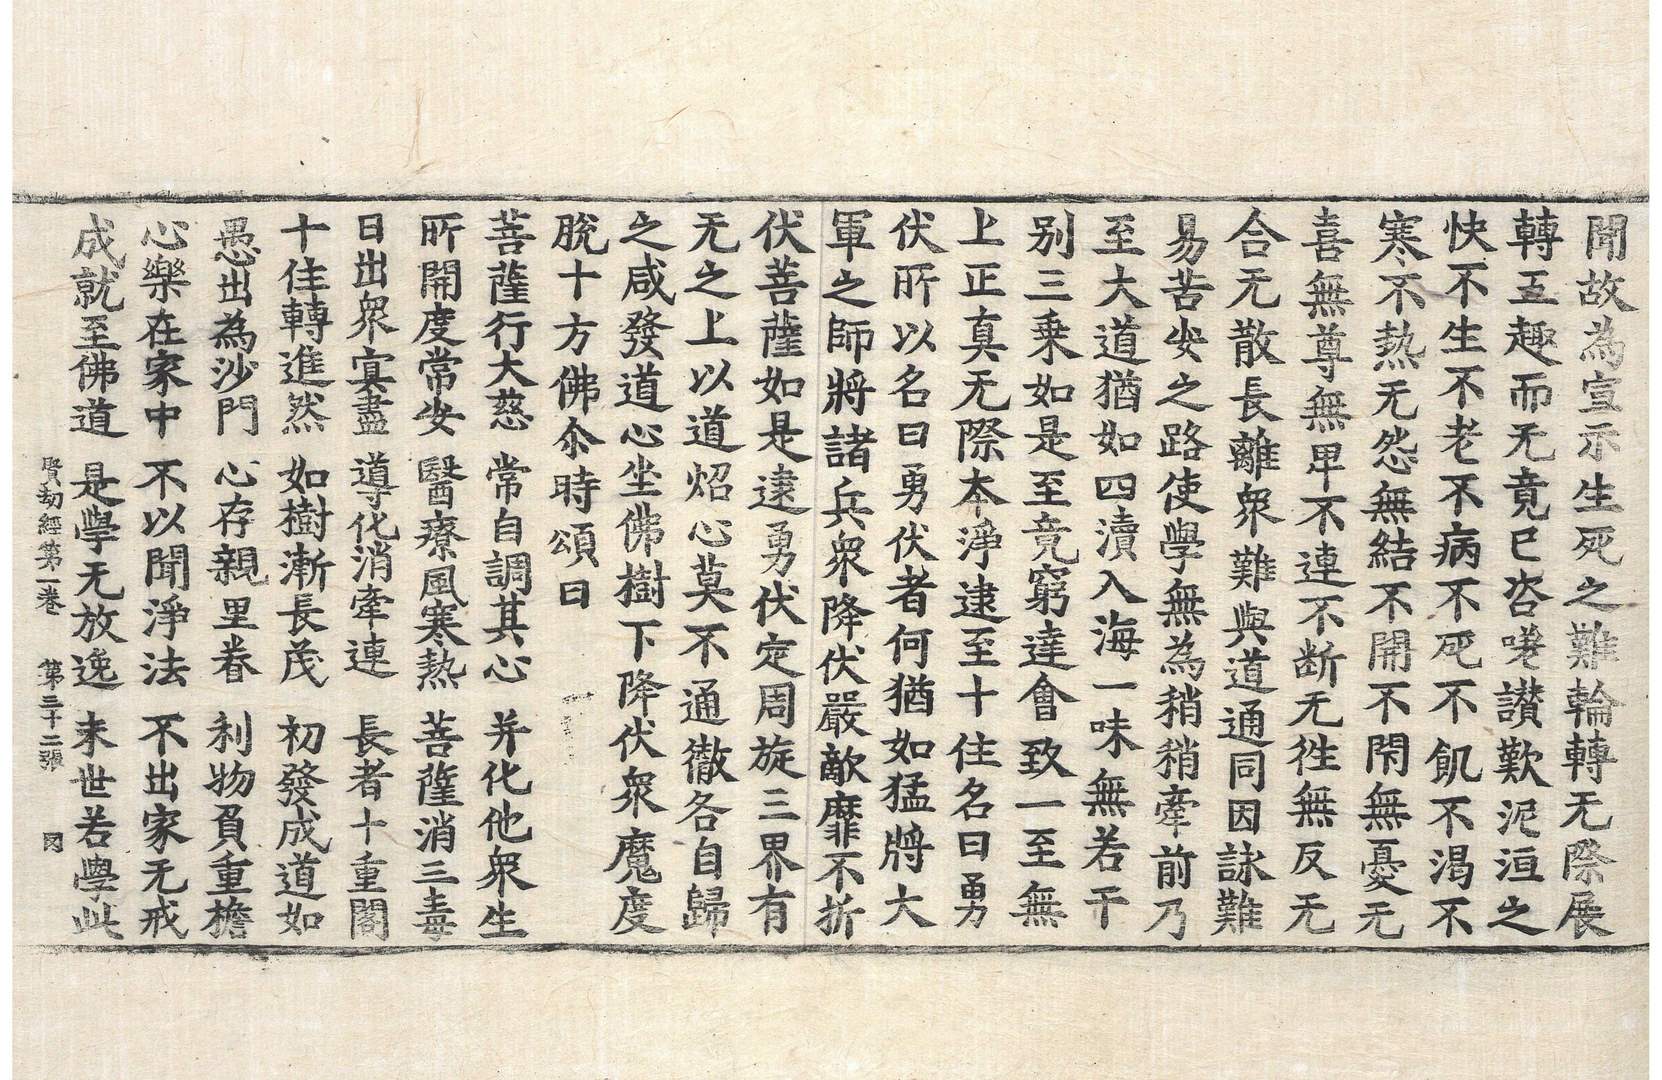 聞故為宣示生死之難輪轉无際展
轉五趣而无竟已咨嗟讃歎泥洹之
快不生不老不病不死不飢不渴不
寒不熱无怨無結不開不閇無憂无
喜無尊無卑不連不断无徃無反无
合无散長離衆難與道通同因詠難
易苦安之路使學無為稍稍牽前乃
至大道猶如四瀆入海一味無若干
别三乗如是至竟窮達會致一至無
上正真无際夲淨逮至十住名曰勇
伏所以名曰勇伏者何猶如猛將大
軍之師將諸兵衆降伏嚴敵靡不折
伏菩薩如是逮勇伏定周旋三界有
无之上以道炤心莫不通徹各自歸
之咸發道心坐佛樹下降伏衆魔度
脫十方佛尒時頌曰
菩薩行大慈 常自調其心 并化他衆生
所開度常安 醫療風寒熱 菩薩消三毒
日出衆冥盡 導化消牽連 長者十重閣
十住轉進然 如樹漸長茂 初發成道如
愚出為沙門 心存親里眷 利物負重擔
心樂在家中 不以聞淨法 不出家无戒
成就至佛道 是學无放逸 末世若學此
賢劫經第一卷 第三十二張 罔